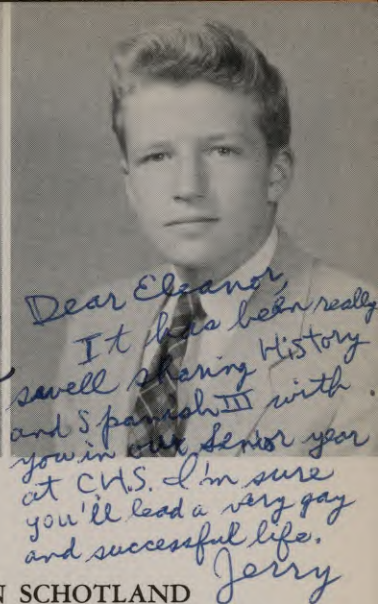 Dear Eleanor,
It has been really
swell sharing History
and Spanish III with
you in our Senior year
at C.H.S. I'm sure
you'll lead a very gay
and successful life.
Jerry
N SCHOTLAND